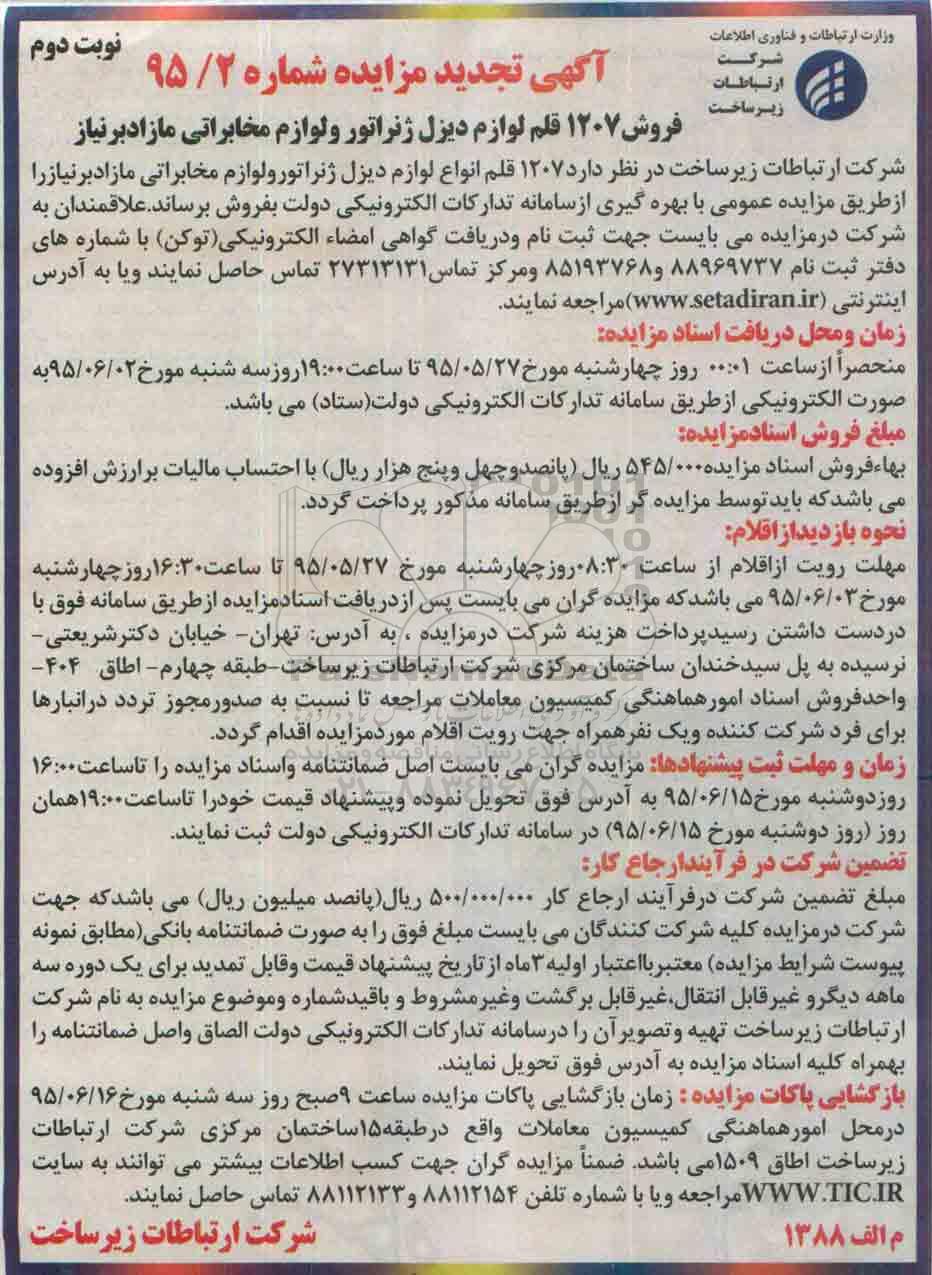 وزارت ارتباطات و فناوری اطلاعات
شرکت
ارتباطات
زیرساخت
نوبت دوم
آگهی تجدید مزایده شماره ۹۵/۲
فروش۱۲۰۷ قلم لوازم دیزل ژنراتور ولوازم مخابراتی مازادبرنیاز
شرکت ارتباطات زیرساخت در نظر دارد۱۲۰۷ قلم انواع لوازم دیزل ژنراتورولوازم مخابراتی مازادبرنیازرا
ازطریق مزایده عمومی با بهره گیری ازسامانه تدارکات الکترونیکی دولت بفروش برساند.علاقمندان به
شرکت درمزایده می بایست جهت ثبت نام ودریافت گواهی امضاء الکترونیکی(توکن) با شماره های
دفتر ثبت نام ۸۸۹۶۹۷۳۷ و۸۵۱۹۳۷۶۸ ومرکز تماس۲۷۳۱۳۱۳۱ تماس حاصل نمایند ویا به آدرس
اینترنتی (www.setadiran.ir)مراجعه نمایند.
زمان ومحل دریافت اسناد مزایده:
منحصراً ازساعت ۰۰:۰۱ روز چهارشنبه مورخ۹۵/۰۵/۲۷ تا ساعت۱۹:۰۰روزسه شنبه مورخ۹۵/۰۶/۰۲به
صورت الکترونیکی ازطریق سامانه تدارکات الکترونیکی دولت(ستاد) می باشد.
مبلغ فروش اسنادمزایده:
بهاءفروش اسناد مزایده۵۴۵/۰۰۰ ریال (پانصدوچهل وپنج هزار ریال) با احتساب مالیات برارزش افزوده
می باشدکه بایدتوسط مزایده گر ازطریق سامانه مذکور پرداخت گردد.
نحوه بازدیدازاقلام:
مهلت رویت ازاقلام از ساعت ۰۸:۳۰روزچهارشنبه مورخ ۹۵/۰۵/۲۷ تا ساعت۱۶:۳۰روزچهارشنبه
مورخ۹۵/۰۶/۰۳ می باشدکه مزایده گران می بایست پس ازدریافت اسنادمزایده ازطریق سامانه فوق با
دردست داشتن رسیدپرداخت هزینه شرکت درمزایده ، به آدرس: تهران- خیابان دکترشریعتی-
نرسیده به پل سیدخندان ساختمان مرکزی شرکت ارتباطات زیرساخت-طبقه چهارم- اطاق ۴۰۴-
واحدفروش اسناد امورهماهنگی کمیسیون معاملات مراجعه تا نسبت به صدورمجوز تردد درانبارها
برای فرد شرکت کننده ویک نفرهمراه جهت رویت اقلام موردمزایده اقدام گردد.
زمان و مهلت ثبت پیشنهادها: مزایده گران می بایست اصل ضمانتنامه واسناد مزایده را تاساعت۱۶:۰۰
روزدوشنبه مورخ۹۵/۰۶/۱۵ به آدرس فوق تحویل نموده وپیشنهاد قیمت خودرا تاساعت۱۹:۰۰همان
روز (روز دوشنبه مورخ ۹۵/۰۶/۱۵) در سامانه تدارکات الکترونیکی دولت ثبت نمایند.
تضمین شرکت در فرآیندارجاع کار:
مبلغ تضمین شرکت درفرآیند ارجاع کار ۵۰۰/۰۰۰/۰۰۰ ریال(پانصد میلیون ریال) می باشدکه جهت
شرکت درمزایده کلیه شرکت کنندگان می بایست مبلغ فوق را به صورت ضمانتنامه بانکی(مطابق نمونه
پیوست شرایط مزایده) معتبربااعتبار اولیه۳ماه ازتاریخ پیشنهاد قیمت وقابل تمدید برای یک دوره سه
ماهه دیگرو غیرقابل انتقال،غیرقابل برگشت وغیرمشروط و باقیدشماره وموضوع مزایده به نام شرکت
ارتباطات زیرساخت تهیه وتصویرآن را درسامانه تدارکات الکترونیکی دولت الصاق واصل ضمانتنامه را
بهمراه کلیه اسناد مزایده به آدرس فوق تحویل نمایند.
بازگشایی پاکات مزایده : زمان بازگشایی پاکات مزایده ساعت ۹صبح روز سه شنبه مورخ۹۵/۰۶/۱۶
درمحل امورهماهنگی کمیسیون معاملات واقع درطبقه۱۵ساختمان مرکزی شرکت ارتباطات
زیرساخت اطاق ۱۵۰۹می باشد. ضمناً مزایده گران جهت کسب اطلاعات بیشتر می توانند به سایت
WWW.TIC.IRمراجعه ویا با شماره تلفن ۸۸۱۱۲۱۵۴ و۸۸۱۱۲۱۳۳ تماس حاصل نمایند.
م الف ۱۳۸۸
شرکت ارتباطات زیرساخت